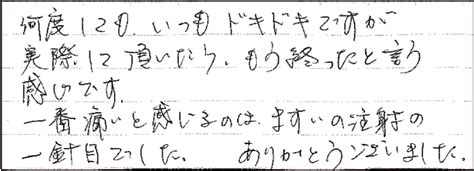 何度しても、いつもドキドキですが
実際して頂いたら、もう終ったと言う
感じです。
一番痛いと感じるのは、ますいの注射の
一針目でした。 ありがとうございました。